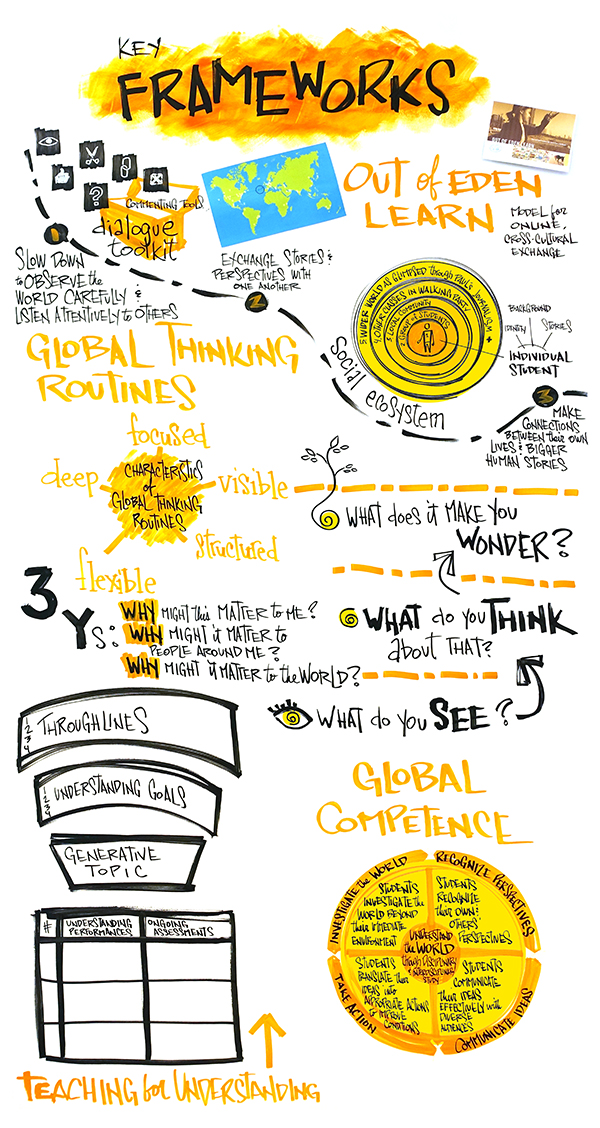 KEY
FRAMEWORKS
COMMENTING TOOLS
dialogue
toolkit
OUT of EDEN
LEARN
MODEL for
ONLINE,
CROSS-CULTURAL
EXCHANGE
1
SLOW DOWN
to OBSERVE the
WORLD CAREFULLY &
LISTEN ATTENTIVELY to OTHERS
EXCHANGE STORIES &
PERSPECTIVES WITH
ONE ANOTHER
2
5 WIDER WORLD AS GLIMPSED through PAUL'S JOURNALISM +
4 OTHER CLASSES IN WALKING PARTY
COMMUNITY
GROUP of STUDENTS
BACKGROUND
IDENTITY
STORIES
INDIVIDUAL
STUDENT
Social ecosystem
3
MAKE
CONNECTIONS
BETWEEN their OWN
LIVES & BIGGER
HUMAN STORIES
GLOBAL THINKING
ROUTINES
focused
deep
visible
structured
flexible
CHARACTERISTICS
of
GLOBAL THINKING
ROUTINES
3 Ys:
WHY MIGHT this MATTER to ME?
WHY MIGHT it MATTER to
PEOPLE AROUND ME?
WHY MIGHT it MATTER to the WORLD?
WHAT DOES iT MAKE YOU
WONDER?
WHAT do you THINK
about THAT?
WHAT do you SEE?
1
2
3
4
THROUGHLINES
1
2
3
4
UNDERSTANDING GOALS
GENERATIVE
TOPIC
#
UNDERSTANDING
PERFORMANCES
ONGOING
ASSESSMENTS
TEACHING for UNDERSTANDING
GLOBAL
COMPETENCE
INVESTIGATE the WORLD
STUDENTS
INVESTIGATE the
WORLD BEYOND
their IMMEDIATE
ENVIRONMENT
RECOGNIZE PERSPECTIVES
STUDENTS
RECOGNIZE
their OWN &
OTHERS'
PERSPECTIVES
UNDERSTAND
the WORLD
through DISCIPLINARY
& INTERDISCIPLINARY
STUDY
TAKE ACTION
STUDENTS
TRANSLATE their
IDEAS into
APPROPRIATE ACTIONS
to IMPROVE
CONDITIONS
COMMUNICATE IDEAS
STUDENTS
COMMUNICATE
their IDEAS
EFFECTIVELY with
DIVERSE
AUDIENCES